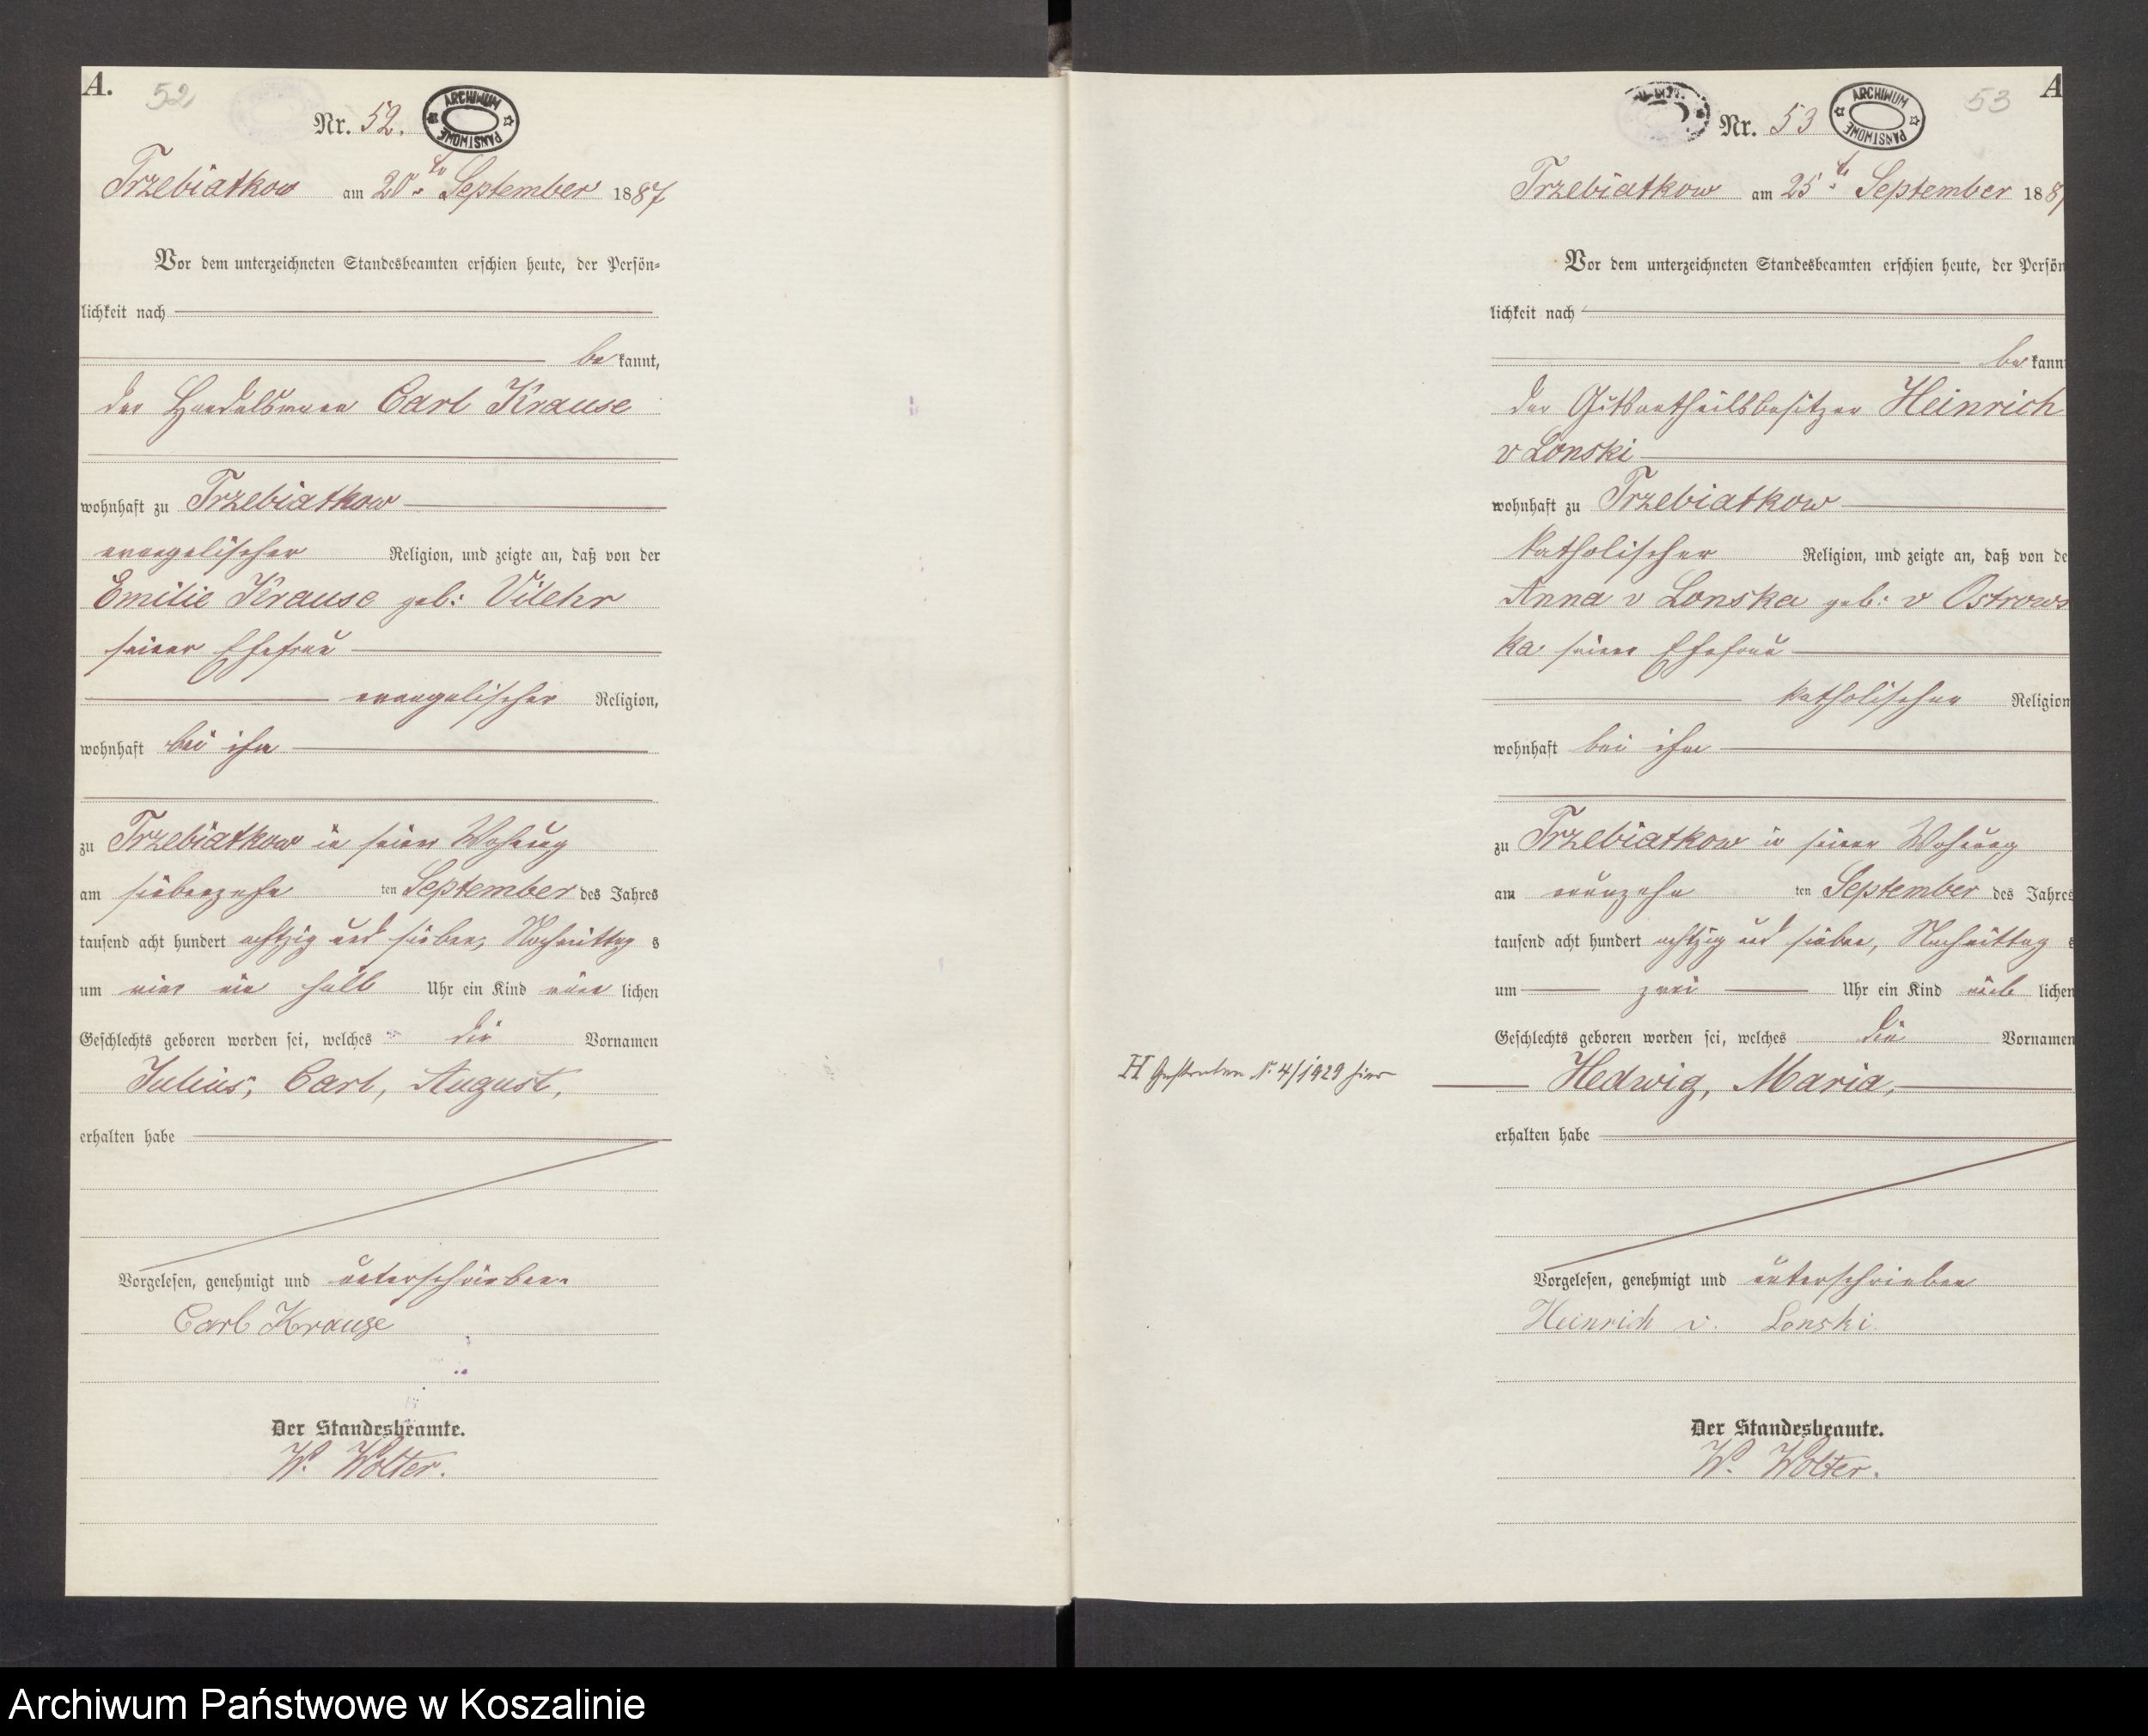 A.
52
Nr. 52.
ARCHIWUM PAŃSTWOWE
Trzebiatkow am 20ten September 1887
Vor dem unterzeichneten Standesbeamten erschien heute, der Persön=
lichkeit nach
be kannt,
der Handelsmann Carl Krause
wohnhaft zu Trzebiatkow
evangelischer Religion, und zeigte an, daß von der
Emilie Krause geb: Vilehr
seiner Ehefrau
evangelischer Religion,
wohnhaft bei ihm
zu Trzebiatkow in seiner Wohnung
am siebenzehn ten September des Jahres
tausend acht hundert achtzig und sieben, Nachmittag s
um vier ein halb Uhr ein Kind männ lichen
Geschlechts geboren worden sei, welches die Vornamen
Julius, Carl, August,
erhalten habe
Vorgelesen, genehmigt und unterschrieben
Carl Krause
Der Standesbeamte.
W. Wolter.
A
53
Nr. 53
ARCHIWUM PAŃSTWOWE
Trzebiatkow am 25te September 188
Vor dem unterzeichneten Standesbeamten erschien heute, der Persön
lichkeit nach
be kann
der Gutsantheilsbesitzer Heinrich
v Lonski
wohnhaft zu Trzebiatkow
katholischer Religion, und zeigte an, daß von de
Anna v Lonska geb: v Ostrows
ka seiner Ehefrau
katholischer Religion
wohnhaft bei ihm
zu Trzebiatkow in seiner Wohnung
am neunzehn ten September des Jahres
tausend acht hundert achtzig und sieben, Nachmittag s
um zwei Uhr ein Kind weib lichen
Geschlechts geboren worden sei, welches die Vornamen
H Gestorben N. 4/1929 hier
Hedwig, Maria,
erhalten habe
Vorgelesen, genehmigt und unterschrieben
Heinrich v. Lonski
Der Standesbeamte.
W. Wolter.
Archiwum Państwowe w Koszalinie